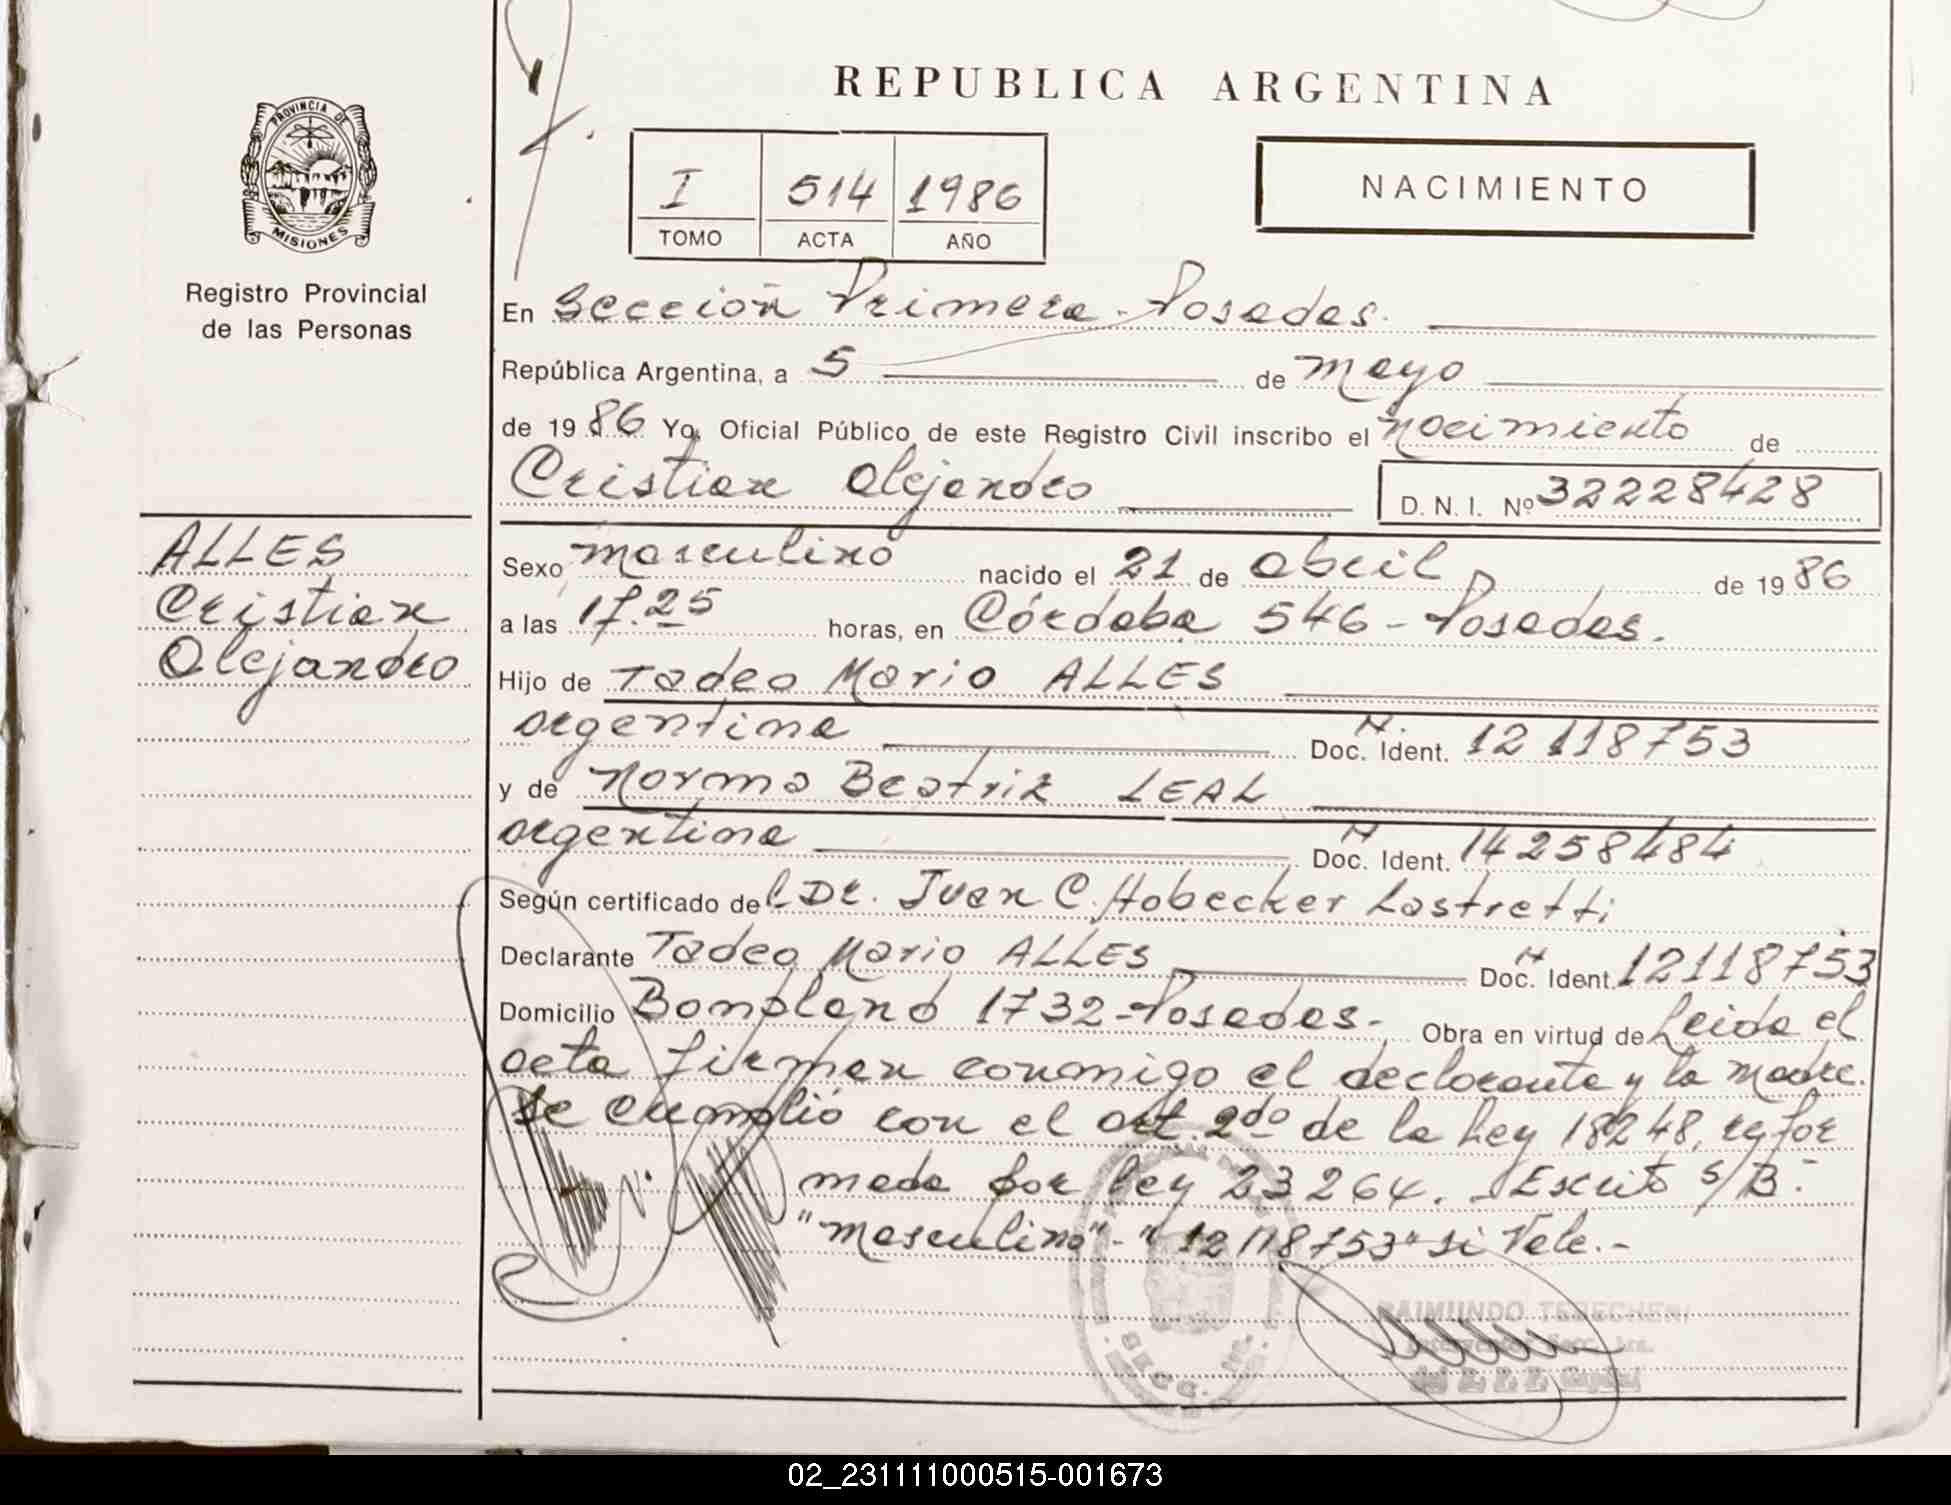 REPUBLICA ARGENTINA
PROVINCIA DE
MISIONES
Registro Provincial
de las Personas
I 514 1986
TOMO ACTA AÑO
NACIMIENTO
En Sección Primera - Posadas.
República Argentina, a 5 de mayo
de 1986 Yo, Oficial Público de este Registro Civil inscribo el nacimiento de
Cristian Alejandro D. N. I. Nº 32228428
ALLES
Cristian
Alejandro
Sexo masculino nacido el 21 de abril de 1986
a las 17.25 horas, en Córdoba 546 - Posadas.
Hijo de Tadeo Mario ALLES
argentina Doc. Ident. 12118753
y de Norma Beatriz LEAL
argentina Doc. Ident. 14258484
Según certificado del Dr. Juan C. Hobecker Lastretti
Declarante Tadeo Mario ALLES Doc. Ident. 12118753
Domicilio Bompland 1732 - Posadas. - Obra en virtud de Leida el
acta firman conmigo el declarante y la madre.
Se cumplió con el art. 2do de la Ley 18248, refor
mada por ley 23264. - Escrito s/B:
"masculino" - "12118753" si Vale. -
RAIMUNDO
SECC.
02_231111000515-001673